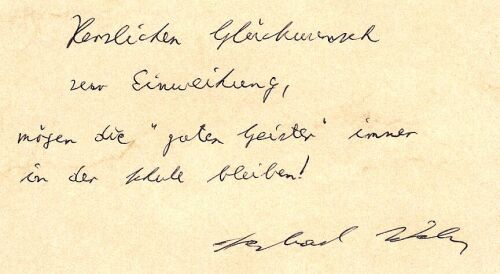 Herzlichen Glückwunsch
zur Einweihung,
mögen die "guten Geister" immer
in der Schule bleiben!